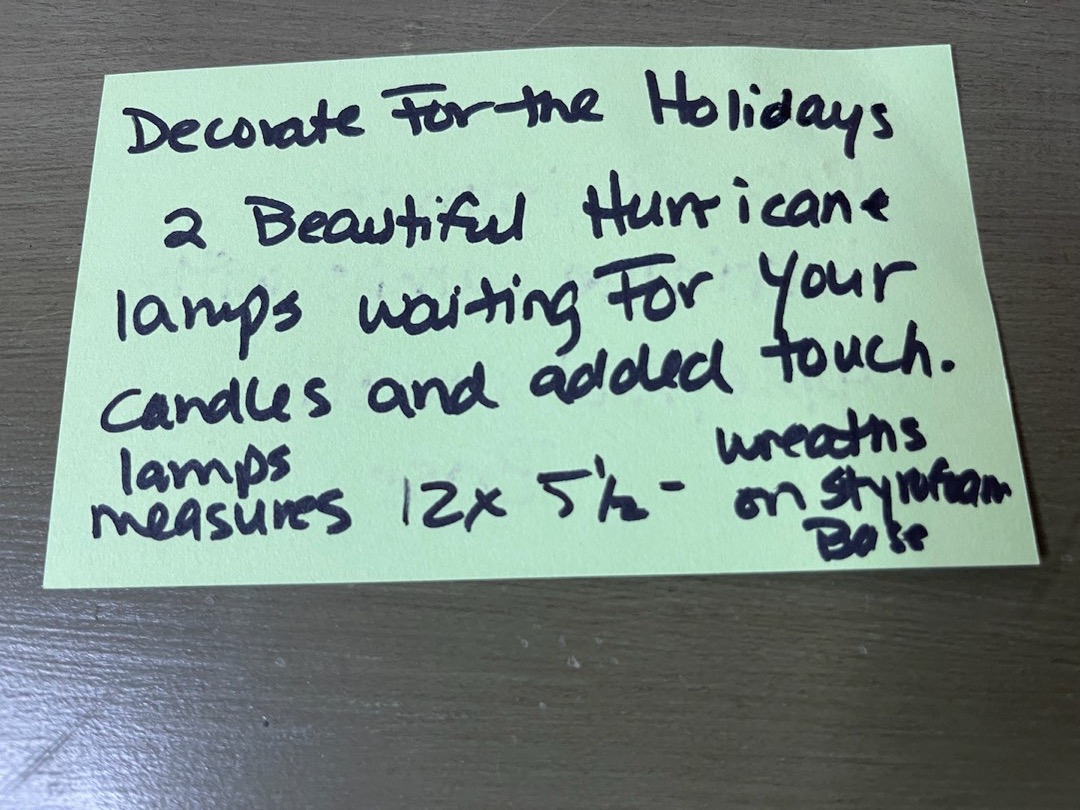 Decorate For the Holidays
2 Beautiful Hurricane
lamps waiting For your
candles and added touch.
lamps
measures 12x 5 1/2 -
wreaths
on styrofoam
Base